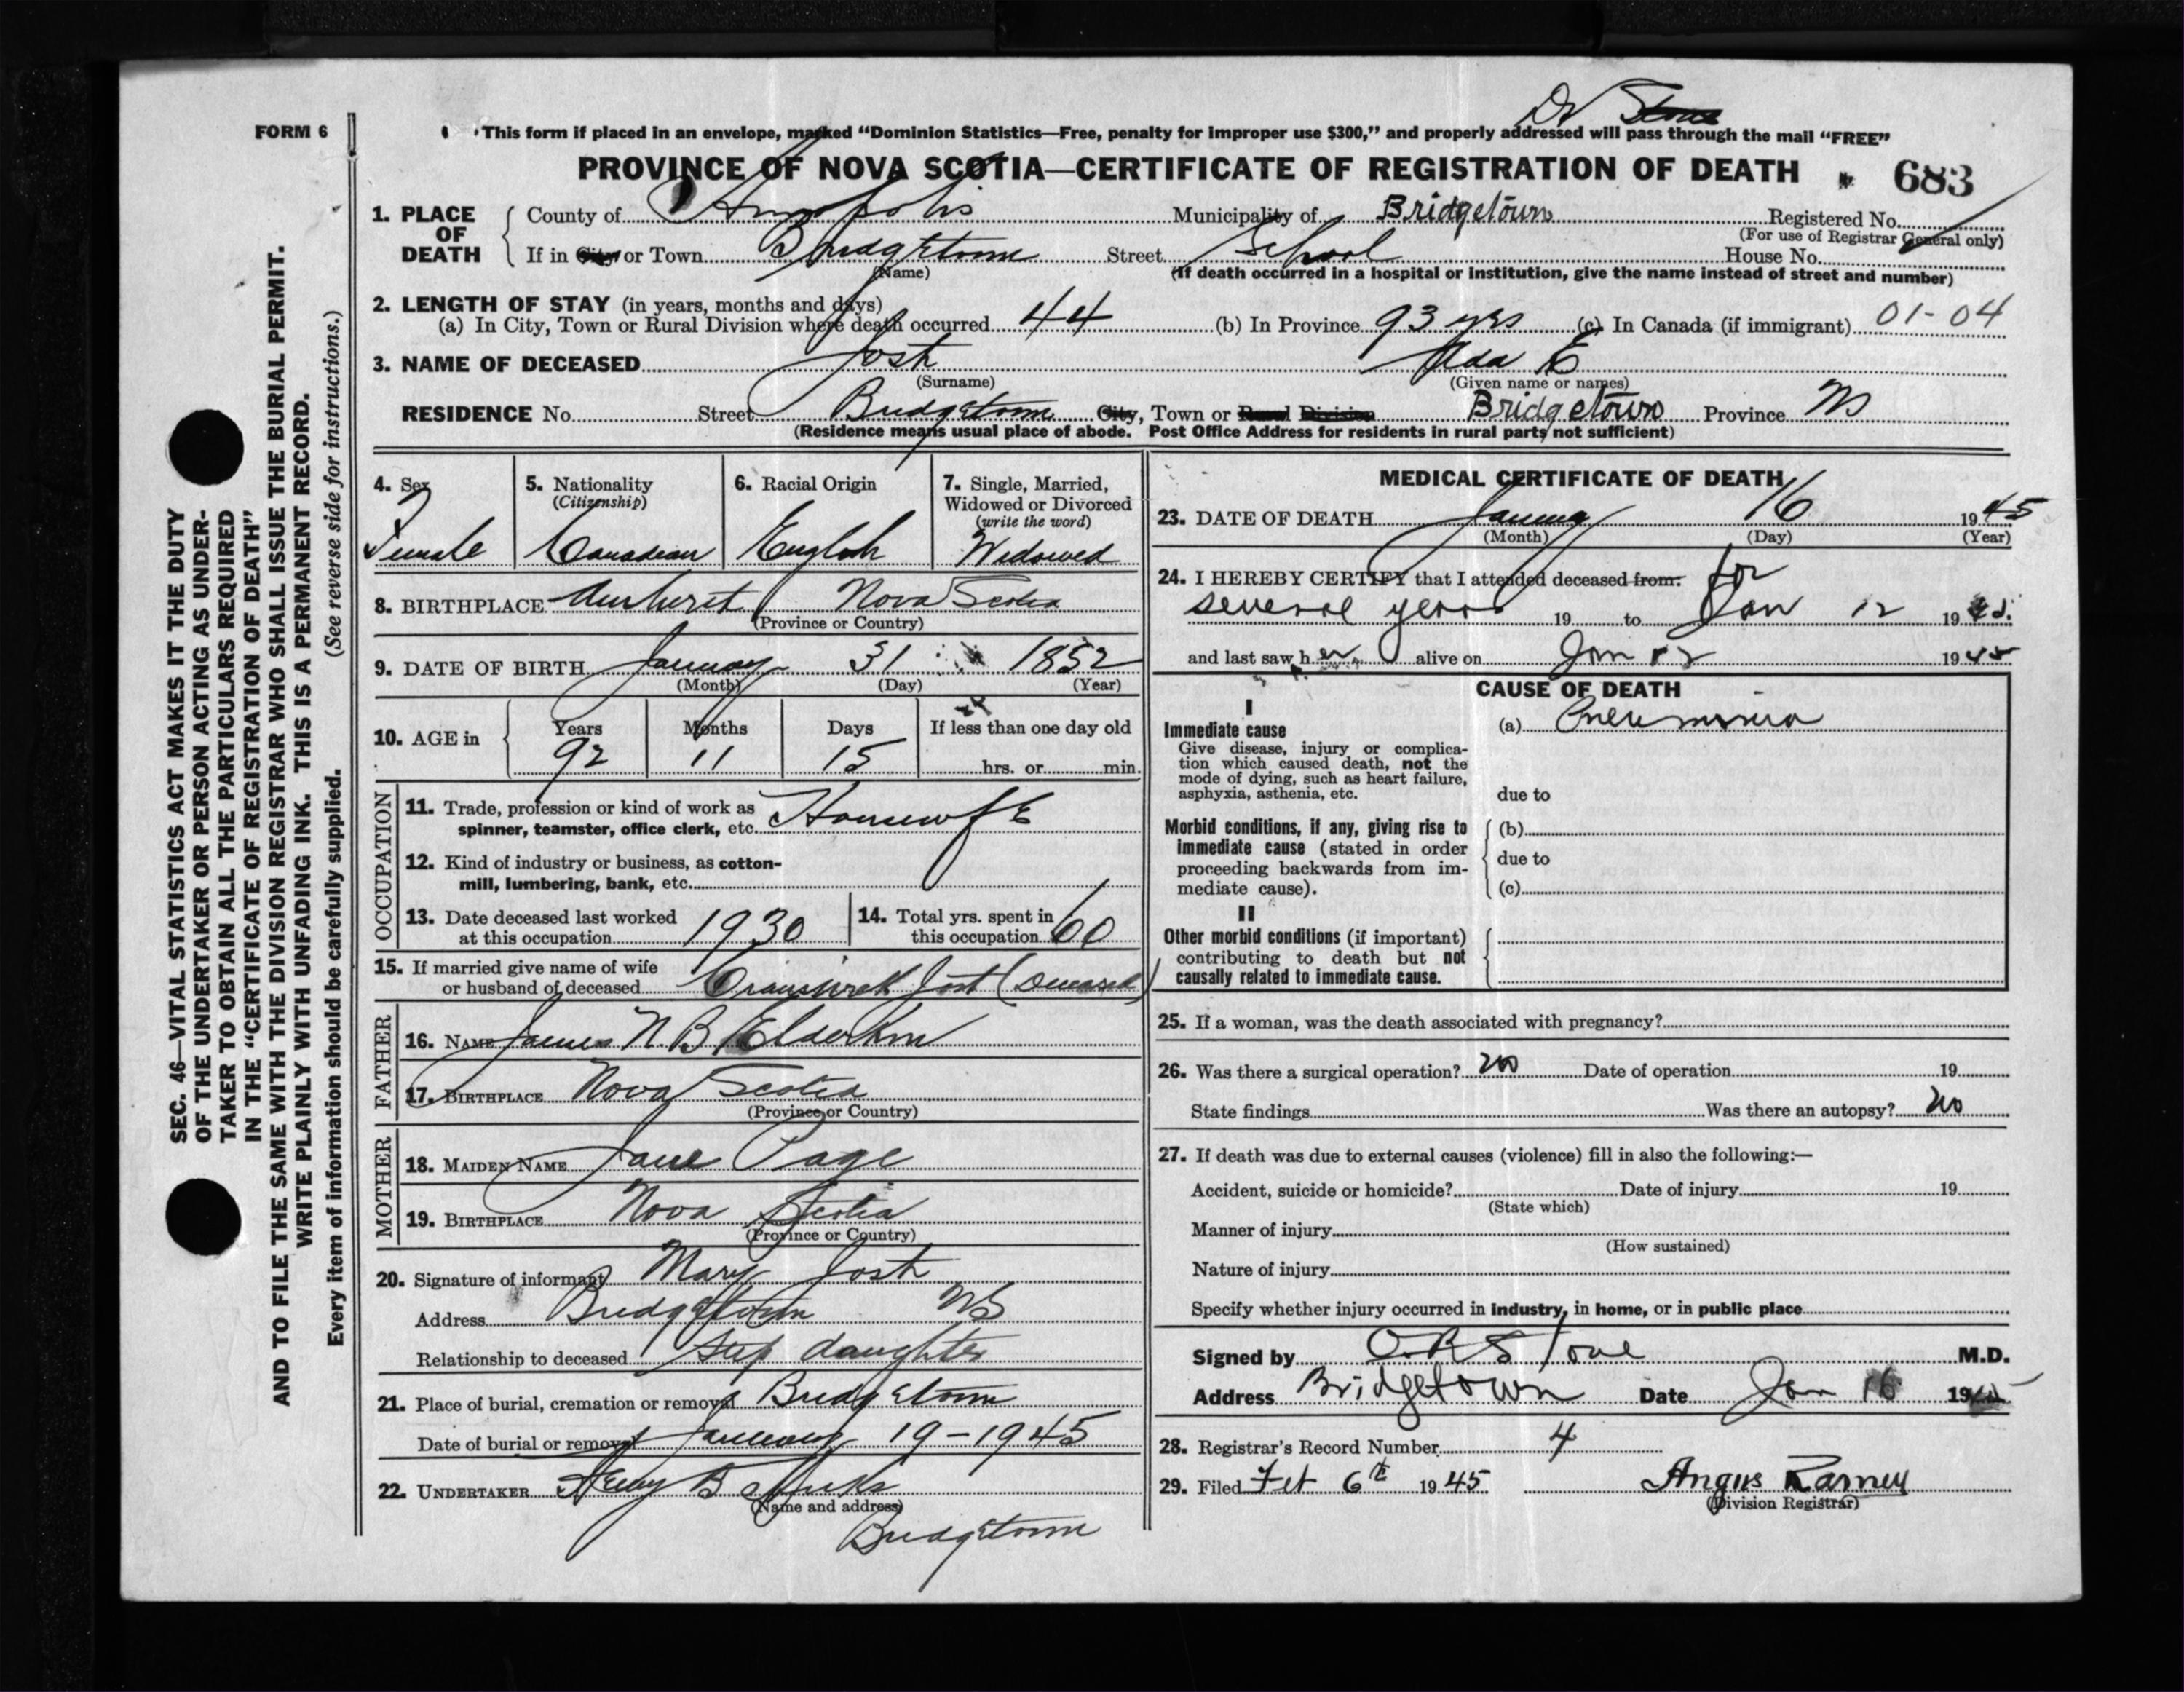 Dr Stone
FORM 6
"This form if placed in an envelope, marked "Dominion Statistics—Free, penalty for improper use $300," and properly addressed will pass through the mail "FREE"
PROVINCE OF NOVA SCOTIA—CERTIFICATE OF REGISTRATION OF DEATH 683
1. PLACE OF DEATH County of Annapolis Municipality of Bridgetown Registered No.
(For use of Registrar General only)
If in City or Town Bridgetown Street School House No.
(Name) (If death occurred in a hospital or institution, give the name instead of street and number)
2. LENGTH OF STAY (in years, months and days)
(a) In City, Town or Rural Division where death occurred 44 (b) In Province 93 yrs (c) In Canada (if immigrant) 01-04
3. NAME OF DECEASED Jost Ada E
(Surname) (Given name or names)
RESIDENCE No. Street Bridgetown City, Town or Rural Division Bridgetown Province NS
(Residence means usual place of abode. Post Office Address for residents in rural parts not sufficient)
4. Sex 5. Nationality 6. Racial Origin 7. Single, Married,
(Citizenship) Widowed or Divorced
(write the word)
Female Canadian English Widowed
8. BIRTHPLACE Amherst Nova Scotia
(Province or Country)
9. DATE OF BIRTH January 31 1852
(Month) (Day) (Year)
10. AGE in Years Months Days If less than one day old
92 11 15 hrs. or min.
OCCUPATION
11. Trade, profession or kind of work as
spinner, teamster, office clerk, etc. Housewife
12. Kind of industry or business, as cotton-
mill, lumbering, bank, etc.
13. Date deceased last worked
at this occupation 1930
14. Total yrs. spent in
this occupation 60
15. If married give name of wife
or husband of deceased Jost (Deceased)
FATHER
16. NAME James N. B. Elderkin
17. BIRTHPLACE Nova Scotia
(Province or Country)
MOTHER
18. MAIDEN NAME Jane Page
19. BIRTHPLACE Nova Scotia
(Province or Country)
20. Signature of informant Mary Jost
Address Bridgetown NS
Relationship to deceased Step daughter
21. Place of burial, cremation or removal Bridgetown
Date of burial or removal January 19-1945
22. UNDERTAKER B Hicks
(Name and address)
Bridgetown
MEDICAL CERTIFICATE OF DEATH
23. DATE OF DEATH January 16 1945
(Month) (Day) (Year)
24. I HEREBY CERTIFY that I attended deceased from: for
several years 19 to Jan 12 1945.
and last saw her alive on Jan 12 1945
CAUSE OF DEATH
I
Immediate cause (a) Pneumonia
Give disease, injury or complica-
tion which caused death, not the
mode of dying, such as heart failure,
asphyxia, asthenia, etc. due to
Morbid conditions, if any, giving rise to (b)
immediate cause (stated in order
proceeding backwards from im- due to
mediate cause). (c)
II
Other morbid conditions (if important)
contributing to death but not
causally related to immediate cause.
25. If a woman, was the death associated with pregnancy?
26. Was there a surgical operation? no Date of operation 19
State findings Was there an autopsy? no
27. If death was due to external causes (violence) fill in also the following:—
Accident, suicide or homicide? Date of injury 19
(State which)
Manner of injury
(How sustained)
Nature of injury
Specify whether injury occurred in industry, in home, or in public place
Signed by O.R Stone M.D.
Address Bridgetown Date Jan 16 1945
28. Registrar's Record Number 4
29. Filed Feb 6th 1945 Angus Ramey
(Division Registrar)
SEC. 46—VITAL STATISTICS ACT MAKES IT THE DUTY
OF THE UNDERTAKER OR PERSON ACTING AS UNDER-
TAKER TO OBTAIN ALL THE PARTICULARS REQUIRED
IN THE "CERTIFICATE OF REGISTRATION OF DEATH"
AND TO FILE THE SAME WITH THE DIVISION REGISTRAR WHO SHALL ISSUE THE BURIAL PERMIT.
WRITE PLAINLY WITH UNFADING INK. THIS IS A PERMANENT RECORD.
Every item of information should be carefully supplied. (See reverse side for instructions.)